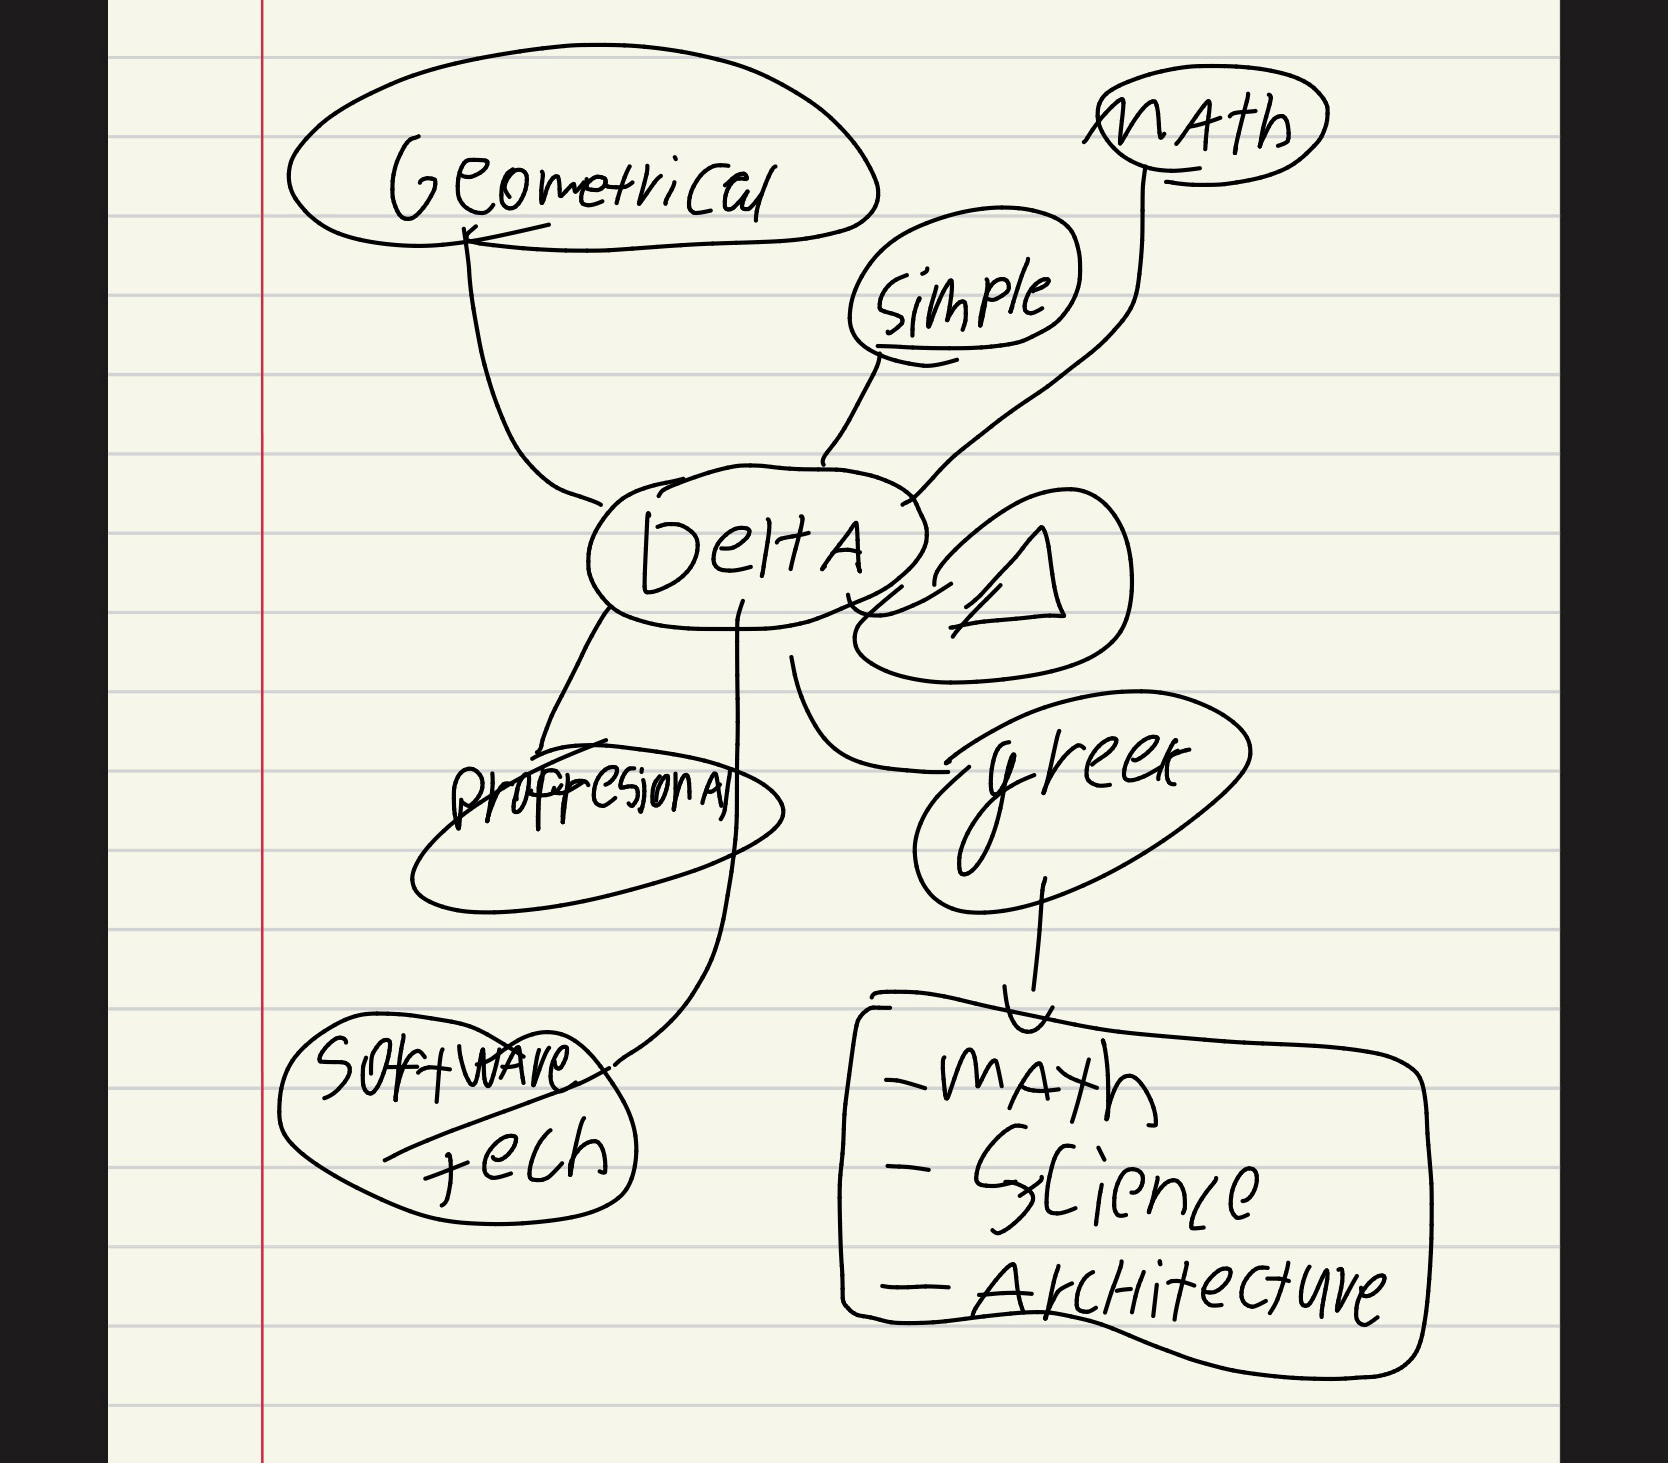 Geometrical
MAth
Simple
DeltA
greek
proffresionAl
SoftwAre
tech
- MAth
- Science
- ArcHitecture